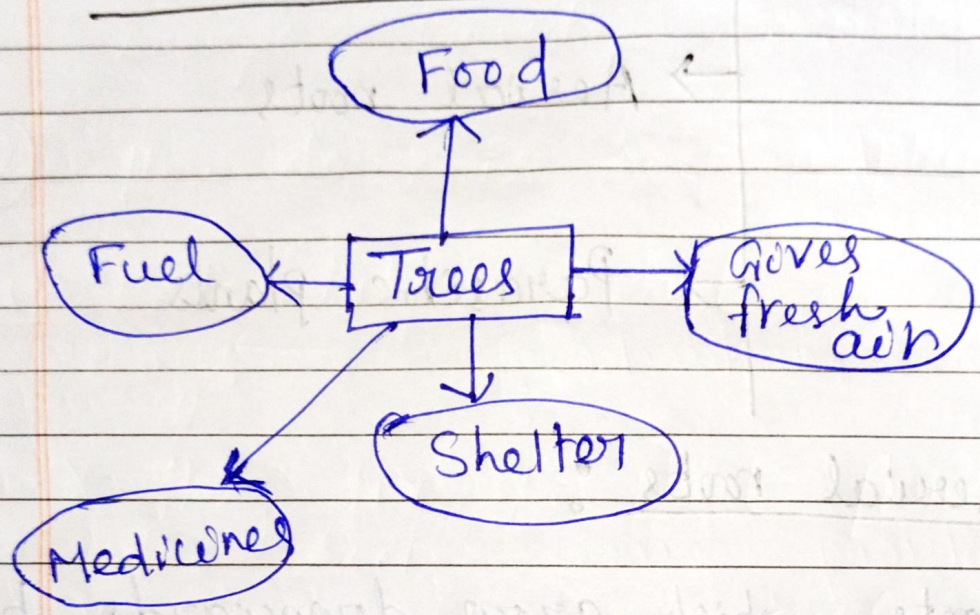 Food
Fuel
Trees
Gives
fresh
air
Shelter
Medicines